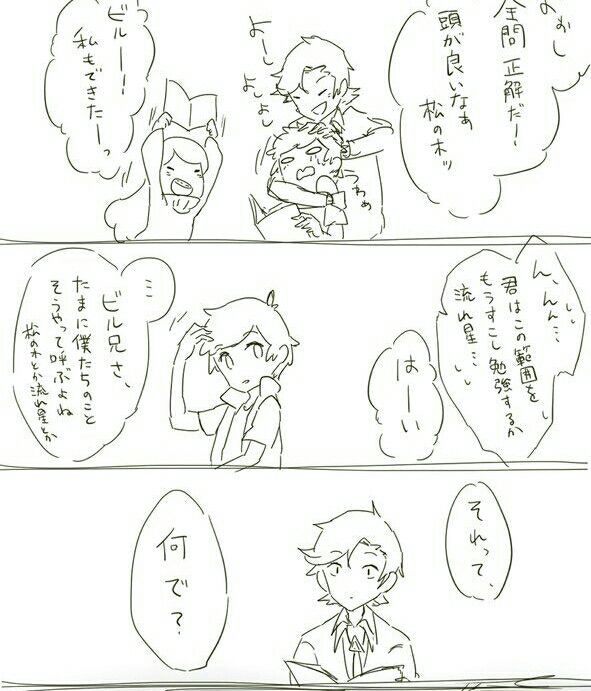 よおし
全問正解だー!
頭が良いなあ
松の木ッ
よーし
よしよし
うわぁ
ビルーー!
私もできたーっ
ん、んん…
君はこの範囲を
もうすこし勉強するか
流れ星…
はーい
ビル兄さ、
たまに僕たちのこと
そうやって呼ぶよね
松の木とか流れ星とか
それって、
何で?